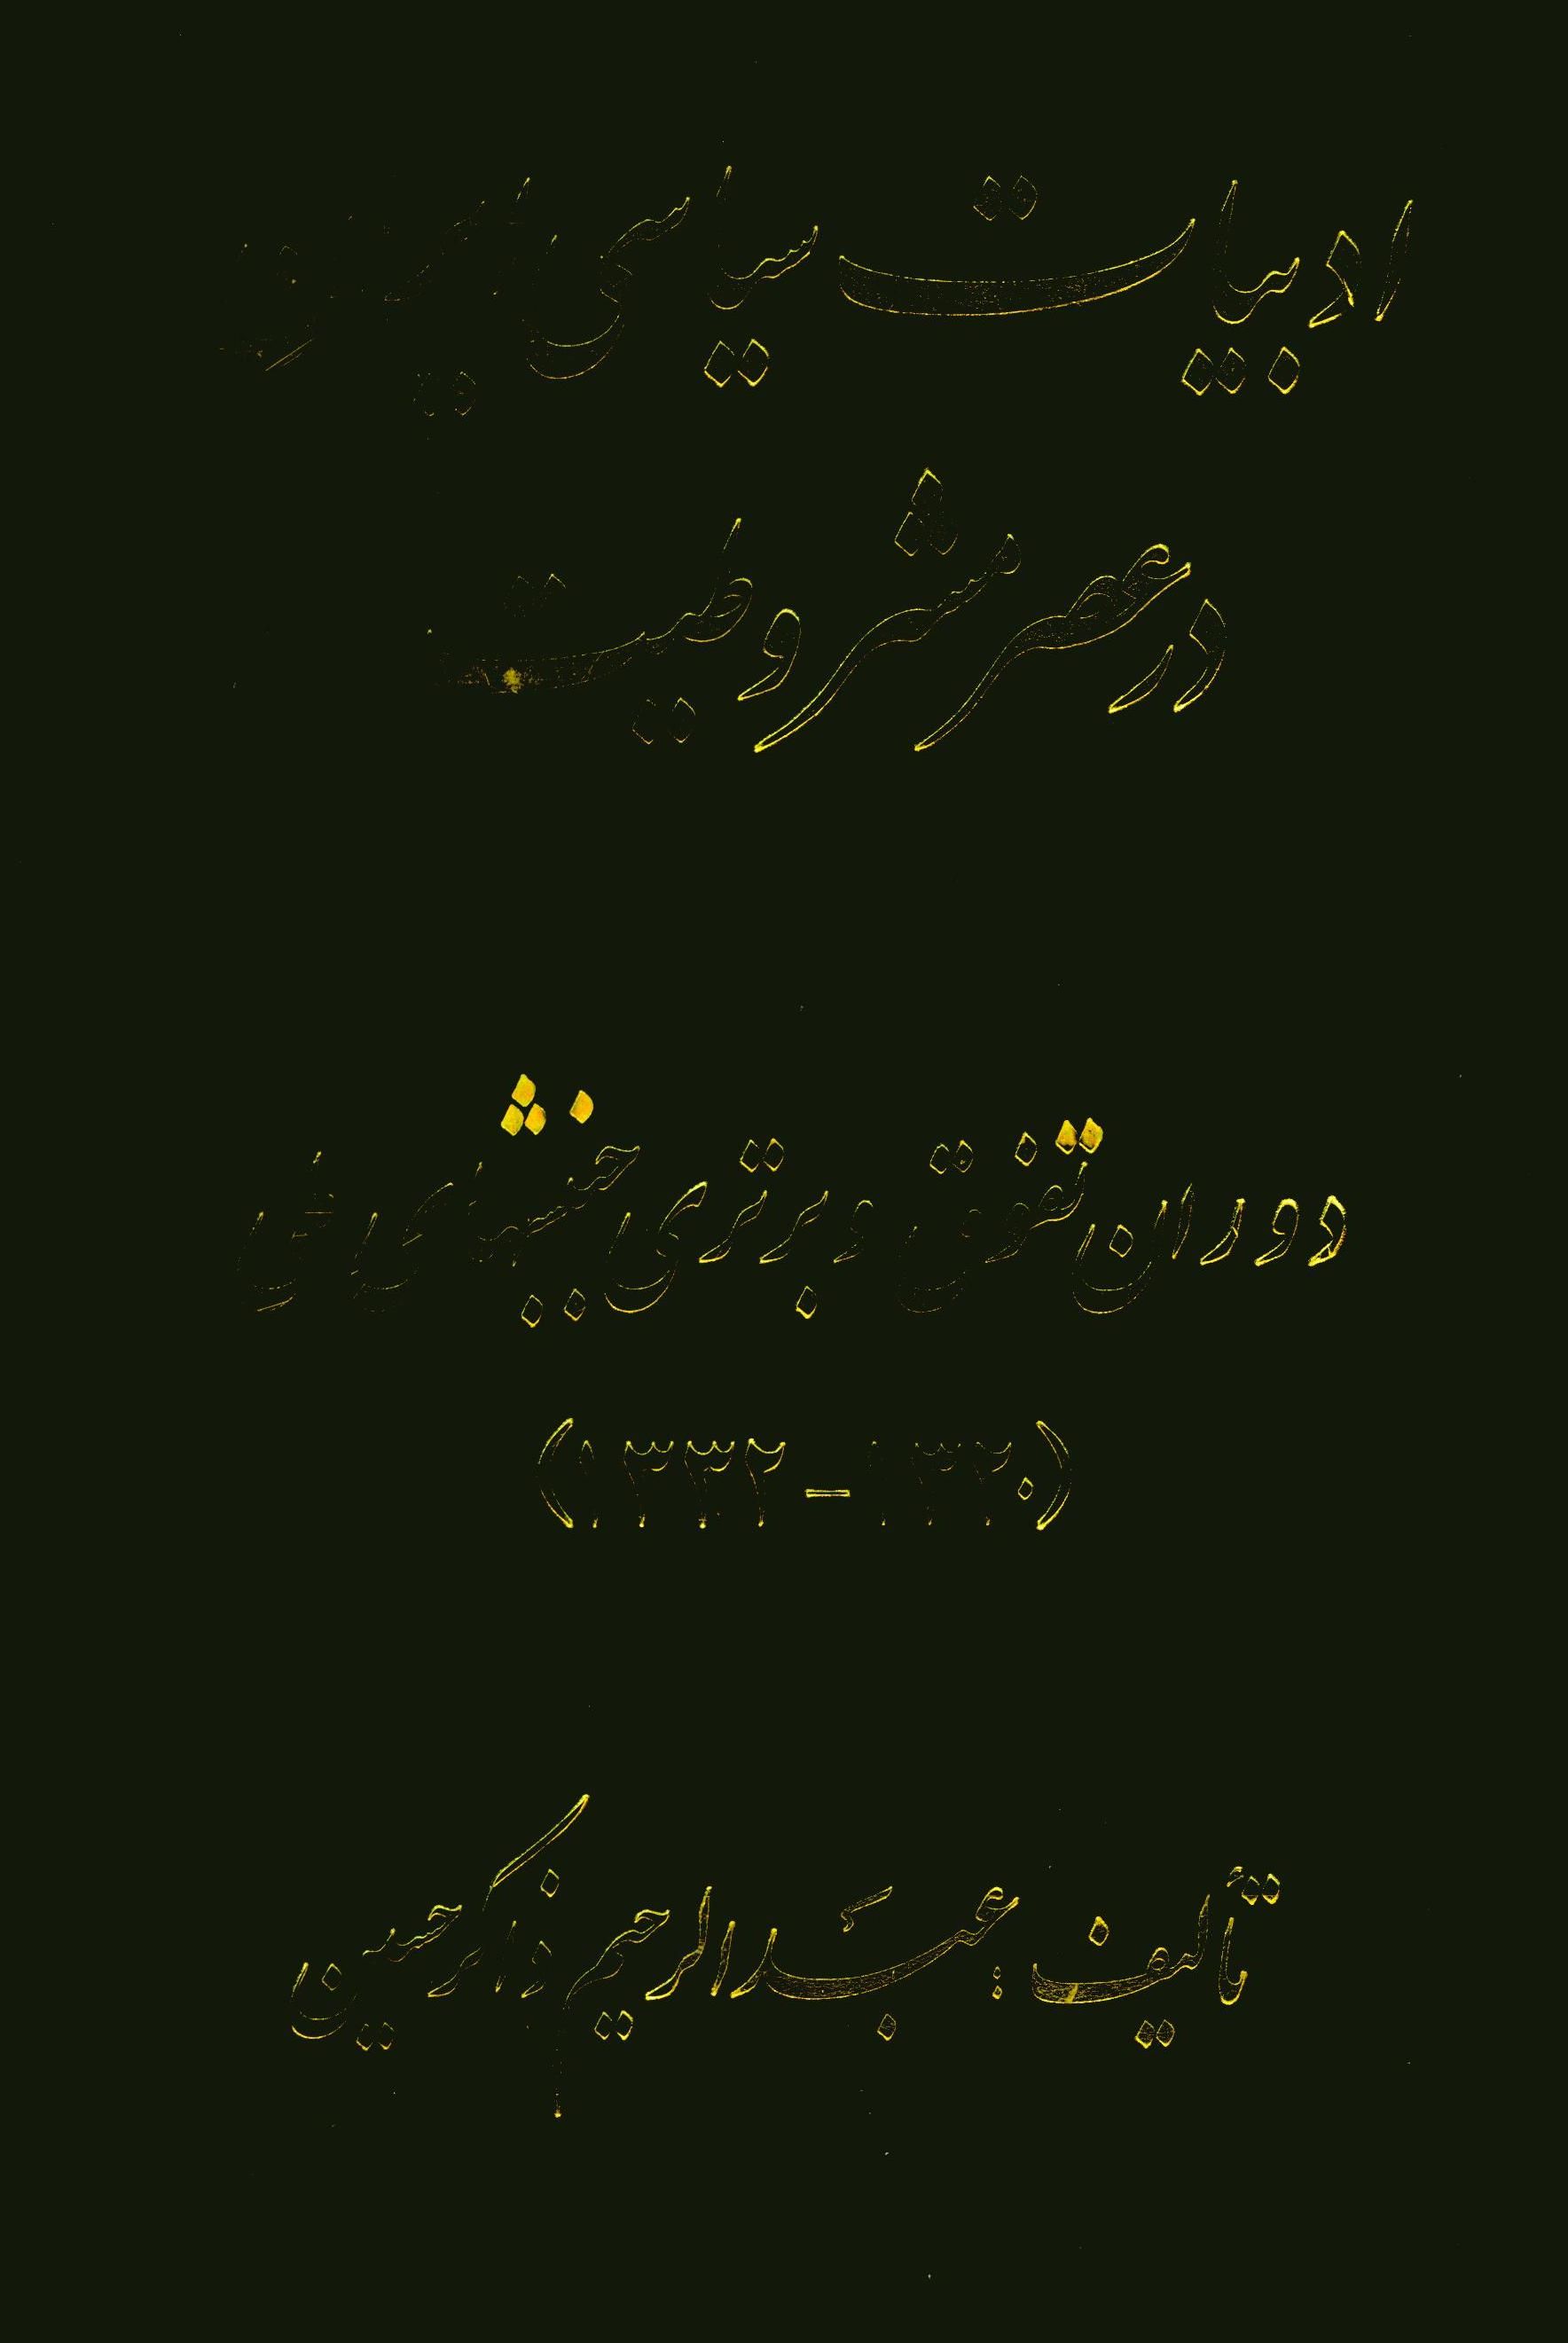 ادبیات سیاسی ایران
در عصر مشروطیت
دوران تفوق و برتری جنبشهای ملی
(۱۳۲۰ – ۱۳۳۲)
تألیف : عبدالرحیم ذاکر حسین